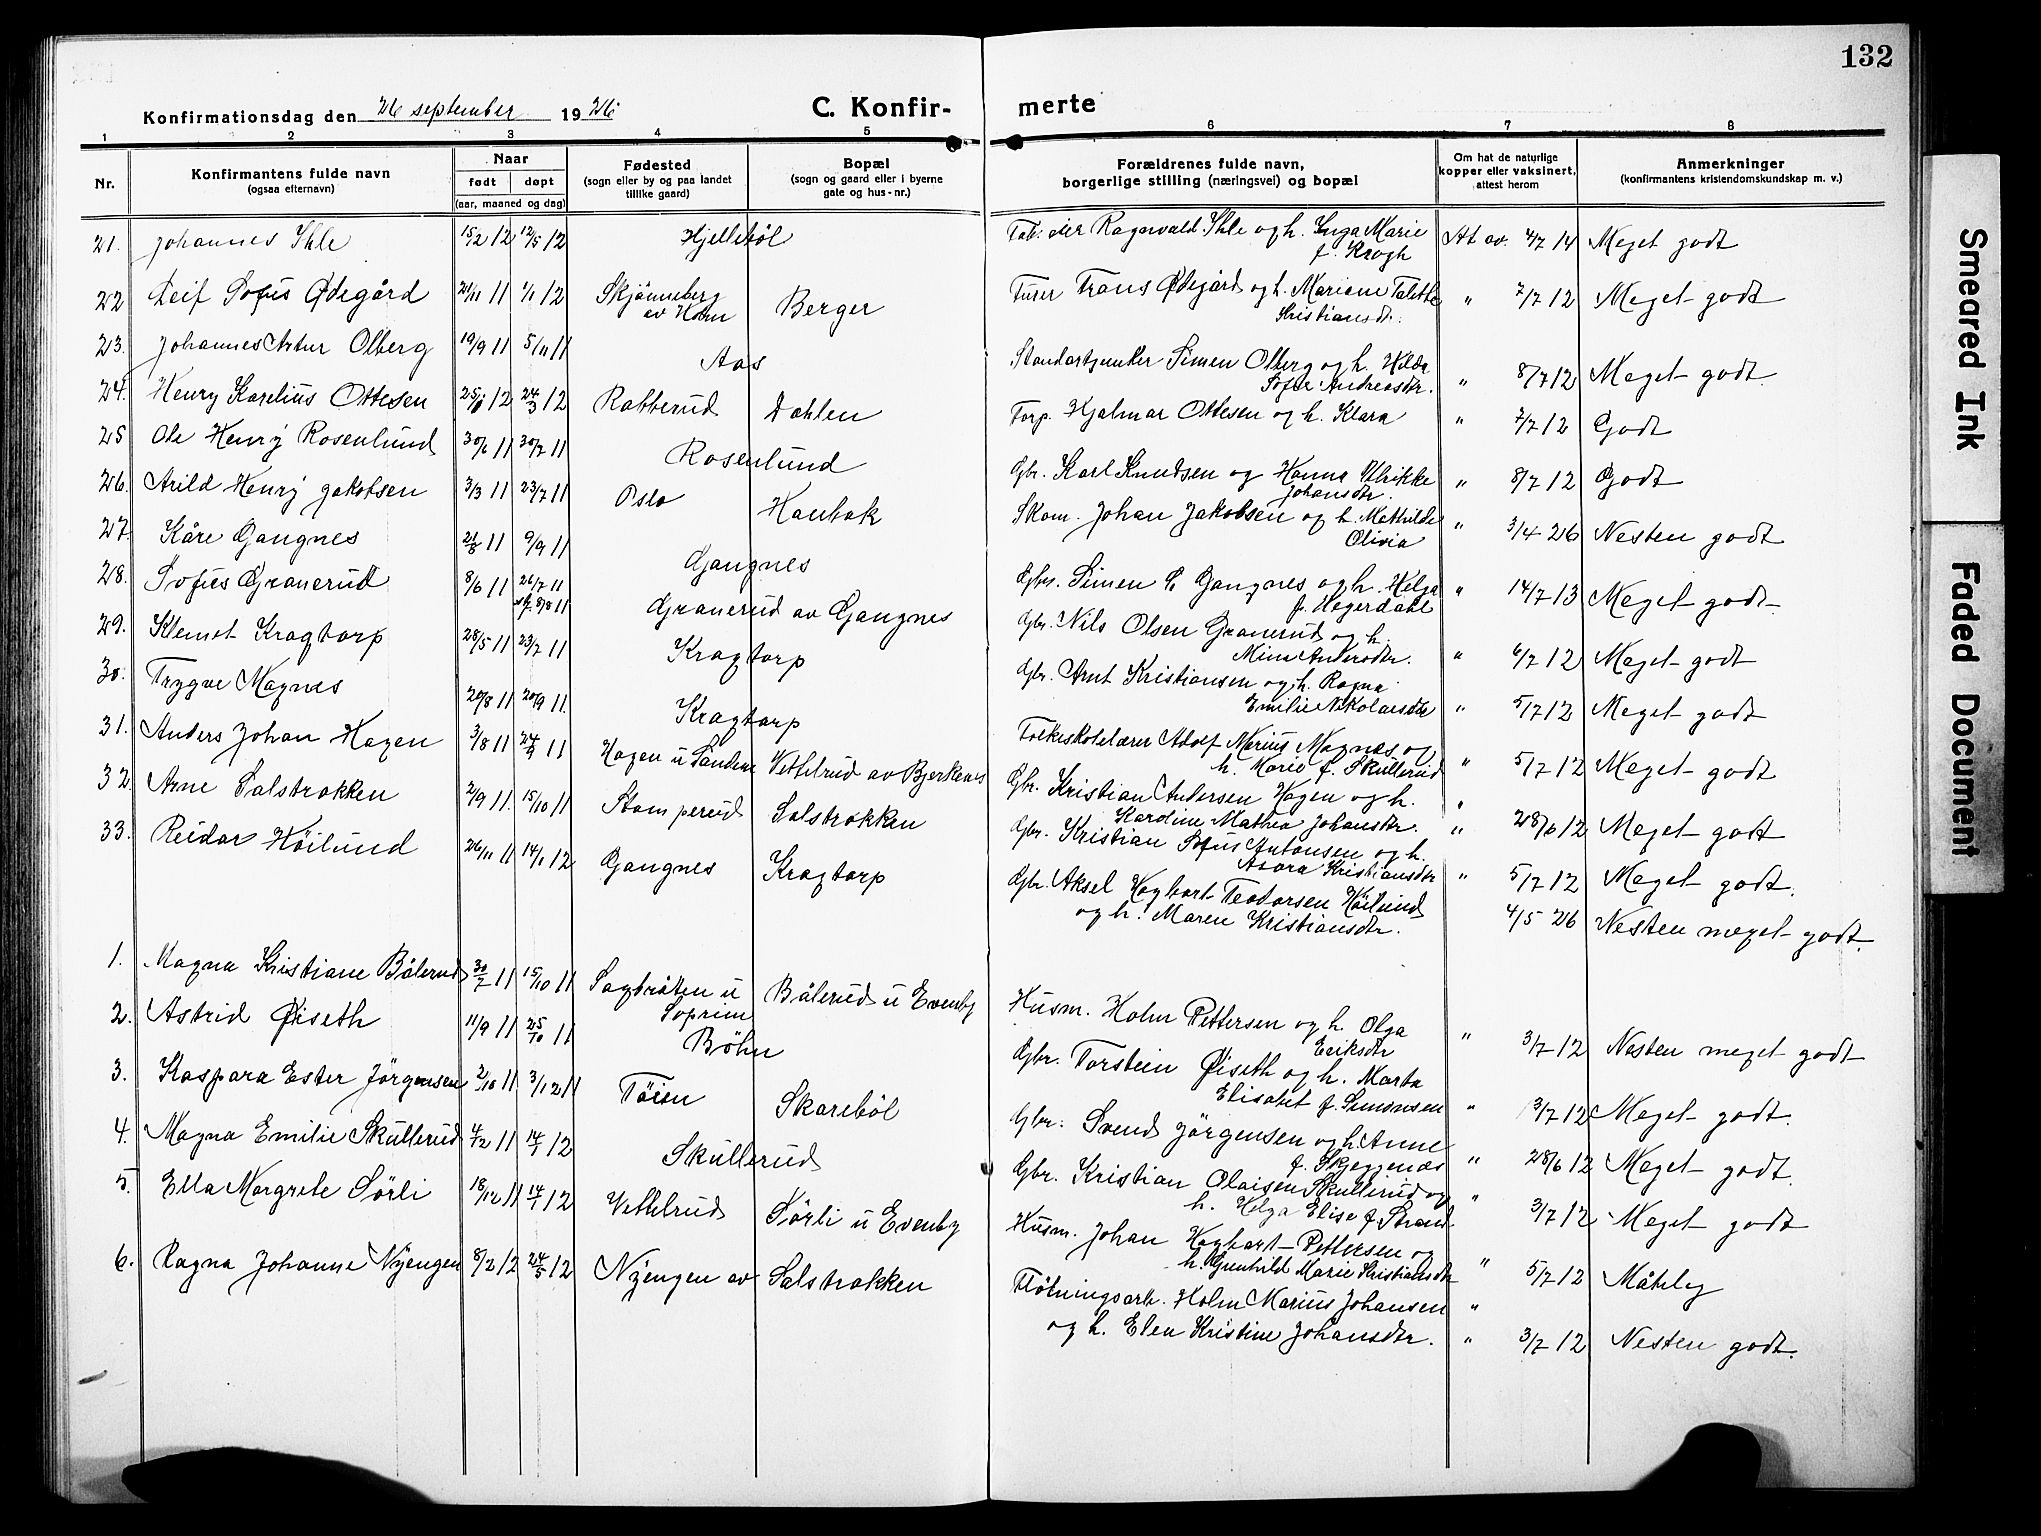 132
Konfirmationsdag den 26 september 1926
C. Konfir-merte
1 2 3 4 5 6 7 8
Nr.
Konfirmantens fulde navn
(ogsaa efternavn)
Naar
født døpt
(aar, maaned og dag)
Fødested
(sogn eller by og paa landet
tillike gaard)
Bopæl
(sogn og gaard eller i byerne
gate og hus-nr.)
Forældrenes fulde navn,
borgerlige stilling (næringsvei) og bopæl
Om hat de naturlige
kopper eller vaksinert,
attest herom
Anmerkninger
(konfirmantens kristendomskundskap m. v.)
21. Johannes Ihle 15/2 12 12/5 12 Hjellebøl Ragnvald Ihle og h. Inga Marie f. Krogh At av. 4/7 14 Meget godt
22 Leif Sofus Ødegård 21/11 11 1/1 12 Skjønneberg av Horn Berger Frans Ødegård og h. Mariene Talette Kristiansdt. " 7/7 12 Meget godt
23. Johannes Artur Olberg 19/9 11 5/11 11 Aas Simen Olberg og h. Hilda Sofie Andreasdtr. " 8/7 12 Meget godt
24. Henry Karelius Ottesen 12 24/3 12 Rabberud Dahlen Torp. Hjalmar Ottesen og h. Klara " 7/7 12 Godt
25 Ole Henry Rosenlund 30/6 11 30/7 11 Rosenlund Gbr. Karl Knudsen og Hanna Ulrikke Johansdtr. " 8/7 12 Godt
26. Arild Henry Jakobsen 3/3 11 23/7 11 Oslo Haubak Skom. Johan Jakobsen og h. Mathilde Olivia " 3/4 26 Nesten godt
27. Kåre Gangnes 21/8 11 9/9 11 Gangnes Gbr. Simen C. Gangnes og h. Helga f. Hegerdahl " 14/7 13 Meget godt
28. Sofus Granerud 8/6 11 26/7 11 st.f. 8/8 11 Granerud av Gangnes Gbr. Nils Olsen Granerud og h. Mina Andersdtr. " 6/7 12 Meget godt
29. Klemet Kragtorp 28/5 11 23/7 11 Kragtorp Gbr. Arnt Kristiansen og h. Ragna Emilie Nikolaisdtr " 5/7 12 Meget godt
30. Trygve Magnes 20/8 11 20/9 11. Kragtorp Folkeskolelærer Adolf Marius Magnes og h. Marie f. Skullerud " 5/7 12 Meget godt
31. Anders Johan Hagen 3/8 11 24/9 11 Hagen u Sandene Vettelrud av Bjerkenes Gbr. Kristian Andersen Hagen og h. Karoline Mathea Johansdtr. " 28/6 12 Meget godt
32 Arne Salstrokken 2/9 11. 15/10 11 Stamperud Salstrokken Gbr. Kristian Sofus Antonsen og h. Asora Kristiansdtr " 5/7 12 Meget godt.
33. Reidar Höilund 26/11 11 14/1 12 Gangnes Kragtorp Gbr. Aksel Hagbart Teodorsen Höilund og h. Maren Kristiansdtr. 4/5 26 Nesten meget godt.
1. Magna Kristiane Bålerud 30/7 11 15/10 11 Sagbråten u Soprim Bålerud u Evenby Husm. Holm Pettersen og h. Olga Eriksdtr " 3/7 12 Nesten meget godt
2. Astrid Øiseth 11/9 11 25/10 11 Böhn Gbr. Torstein Øiseth og h. Marta Elisabet f. Simonsen " 3/7 12 Meget godt.
3. Kaspara Ester Jörgensen 2/10 11 3/12 11 Töien Skarebøl Gbr. Svend Jörgensen og h. Anne f. Skjeggenæs " 28/6 12 Meget godt.
4. Magna Emilie Skullerud 4/2 11 14/1 12 Skullerud Gbr. Kristian Olaisen Skullerud og h. Helga Elise f. Strand " 3/7 12 Meget godt
5. Ella Margrete Sörli 18/12 11 14/1 12 Vettelrud Sörli u Evenby Husm. Johan Hagbart Pettersen og h. Gunhild Marie Kristiansdtr " 5/7 12 Måtelig
6. Ragna Johanne Nyengen 8/2 12 24/5 12 Nyengen av Salstrokken Flötningsarb. Holm Marius Johansen og h. Elen Kristine Johansdtr. " 3/7 12 Nesten godt.
Smeared Ink
Faded Document